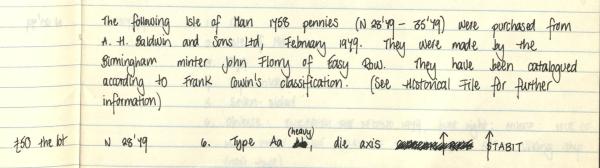 The following Isle of Man 1758 pennies (N 28'79 - 35'79) were purchased from
A. H. Baldwin and Sons Ltd, February 1979. They were made by the
Birmingham minter John Florry of Easy Row. They have been catalogued
according to Frank Cowin's classification. (See Historical File for further
information)
£50 the lot N 28'79 6. Type Aa (heavy), die axis ↑ ↑
STABIT